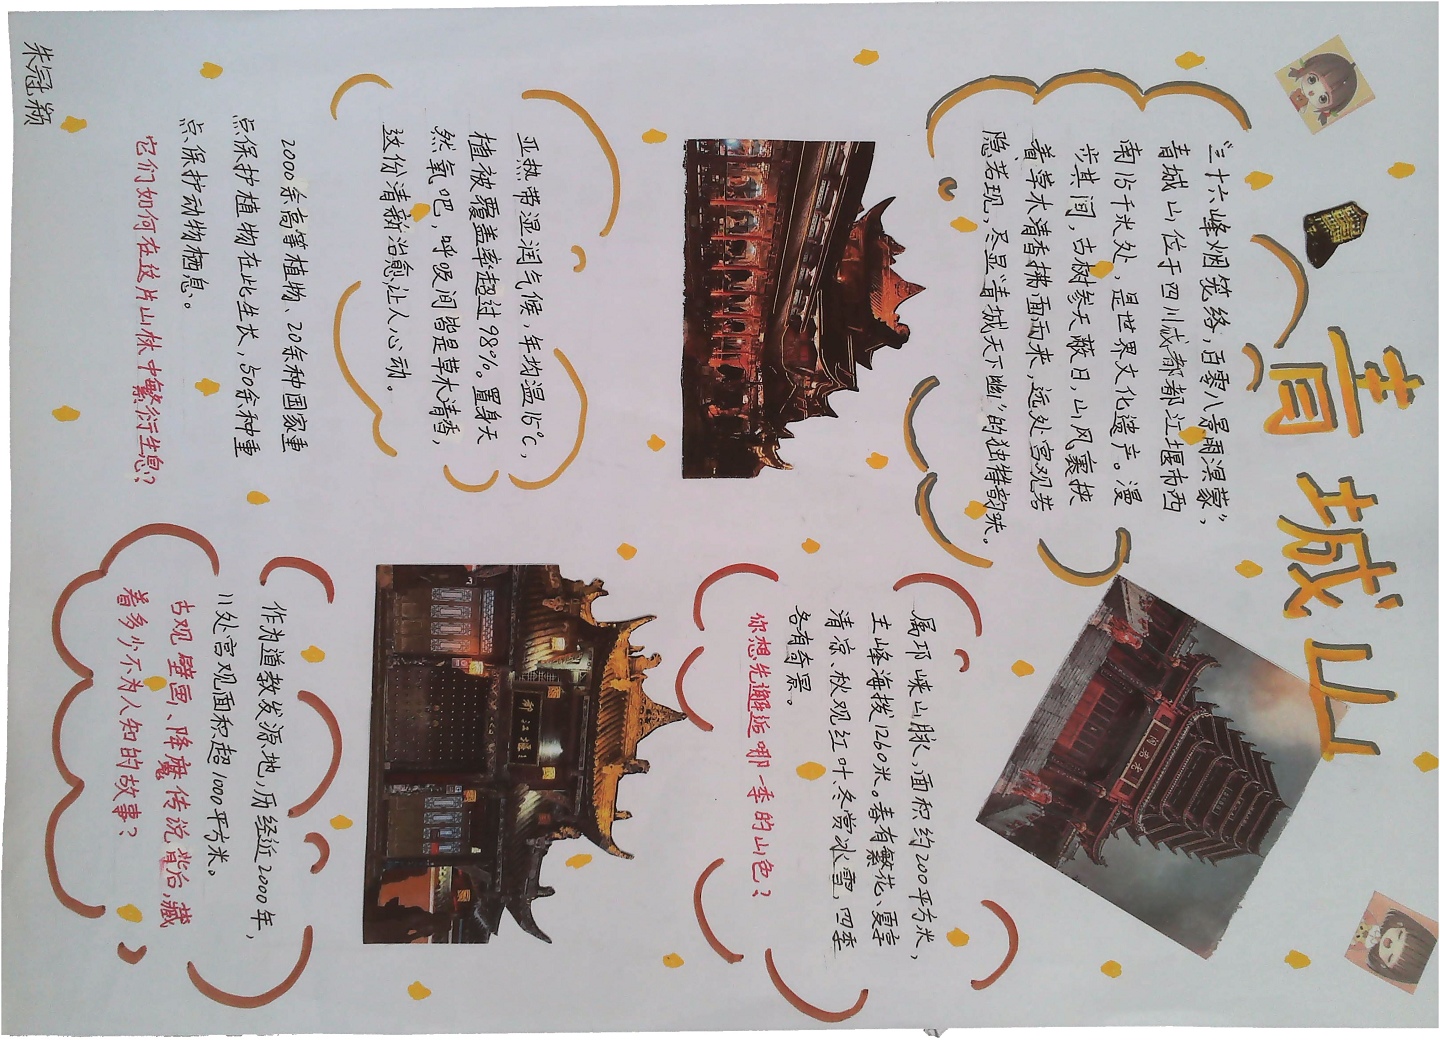 青城山
“三十六峰烟笼络，百零八景雨溟蒙”，
青城山位于四川成都都江堰市西
南15千米处，是世界文化遗产。漫
步其间，古树参天蔽日，山风裹挟
着草木清香拂面而来，远处宫观若
隐若现，尽显“青城天下幽”的独特韵味。
老君阁
属邛崃山脉，面积约200平方米，
主峰海拨1260米。春有繁花、夏享
清凉、秋观红叶、冬赏冰雪，四季
各有奇景。
你想先邂逅哪一季的山色？
都江堰
亚热带湿润气候，年均温15℃，
植被覆盖率超过98%。置身天
然氧吧，呼吸间皆是草木清香，
这份清新治愈，让人心动。
2000余高等植物、20余种国家重
点保护植物在此生长，50余种重
点保护动物栖息。
它们如何在这片山林中繁衍生息？
作为道教发源地，历经近2000年，
11处宫观面积超1000平方米。
古观壁画、降魔传说背后，藏
着多少不为人知的故事？
朱冠颖